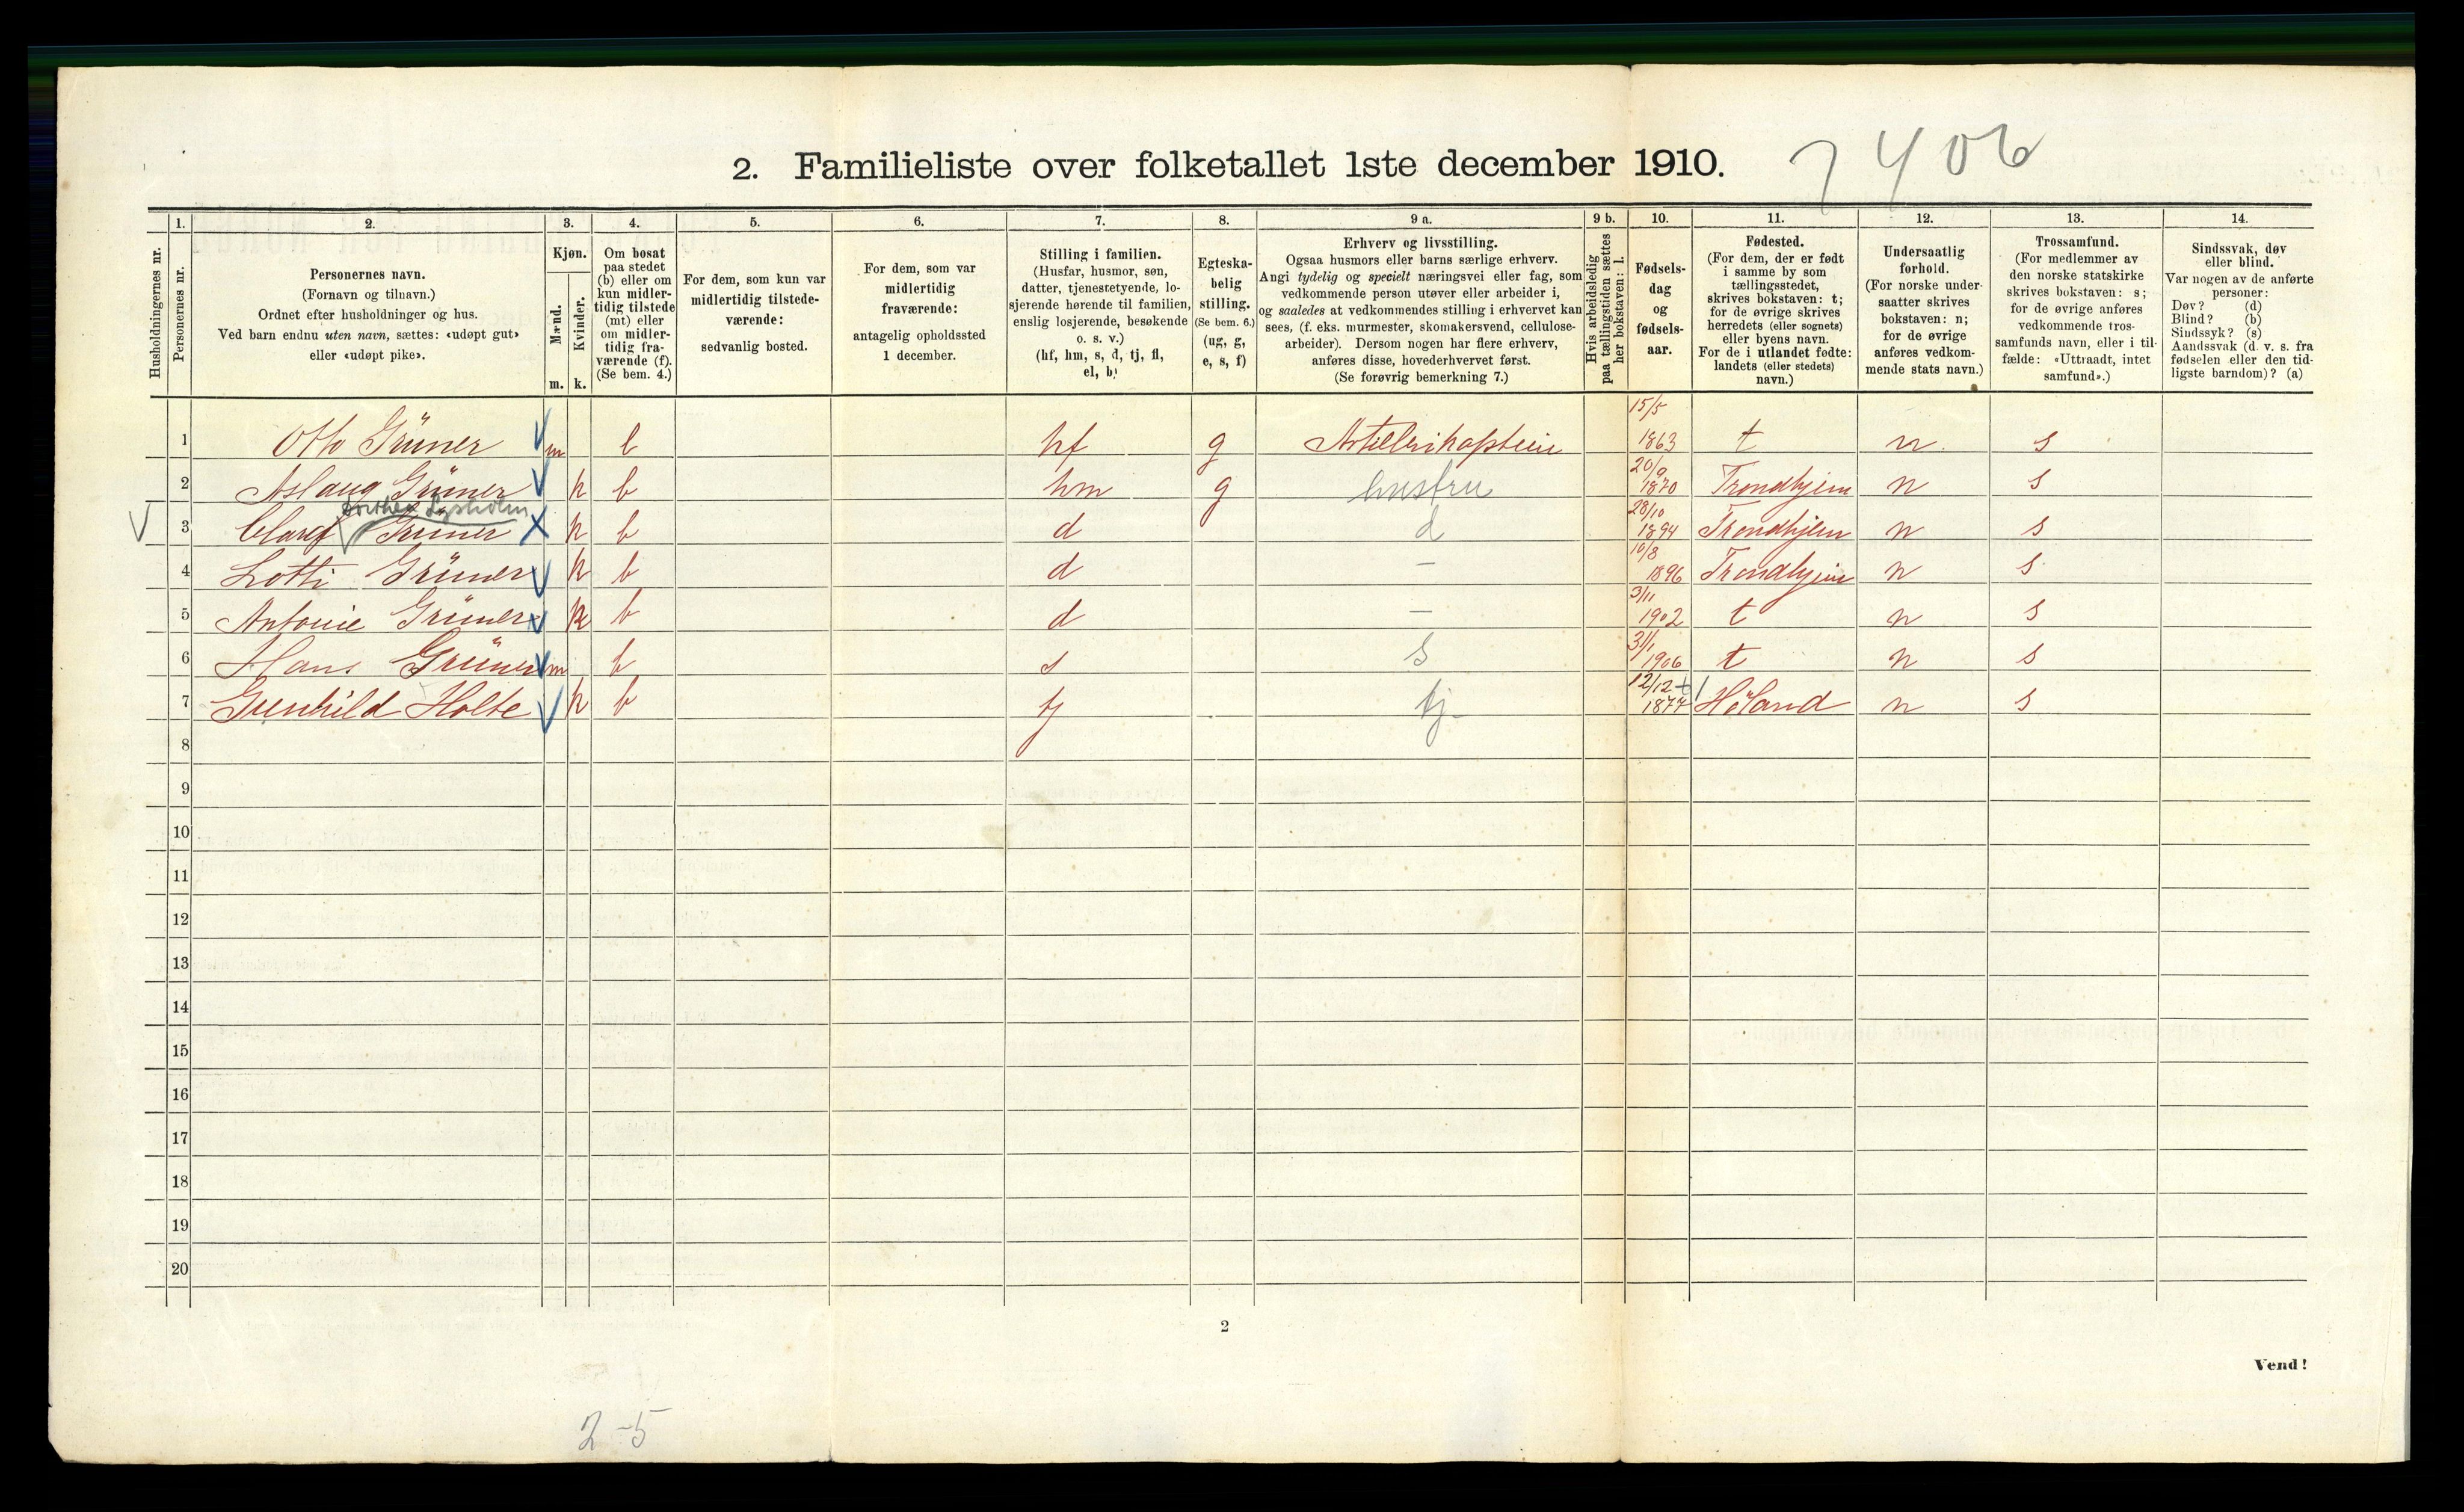 2. Familieliste over folketallet 1ste december 1910.
7406
1. 2. 3. 4. 5. 6. 7. 8. 9 a. 9 b. 10. 11. 12. 13. 14.
Husholdningernes nr.
Personernes nr.
Personernes navn.
(Fornavn og tilnavn.)
Ordnet efter husholdninger og hus.
Ved barn endnu uten navn, sættes: «udøpt gut»
eller «udøpt pike».
Kjøn.
Mænd.
Kvinder.
m. k.
Om bosat
paa stedet
(b) eller om
kun midler-
tidig tilstede
(mt) eller
om midler-
tidig fra-
værende (f).
(Se bem. 4.)
For dem, som kun var
midlertidig tilstede-
værende:
sedvanlig bosted.
For dem, som var
midlertidig
fraværende:
antagelig opholdssted
1 december.
Stilling i familien.
(Husfar, husmor, søn,
datter, tjenestetyende, lo-
sjerende hørende til familien,
enslig losjerende, besøkende
o. s. v.)
(hf, hm, s, d, tj, fl,
el, b)
Egteska-
belig
stilling.
(Se bem. 6.)
(ug, g,
e, s, f)
Erhverv og livsstilling.
Ogsaa husmors eller barns særlige erhverv.
Angi tydelig og specielt næringsvei eller fag, som
vedkommende person utøver eller arbeider i,
og saaledes at vedkommendes stilling i erhvervet kan
sees, (f. eks. murmester, skomakersvend, cellulose-
arbeider). Dersom nogen har flere erhverv,
anføres disse, hovederhvervet først.
(Se forøvrig bemerkning 7.)
Hvis arbeidsledig
paa tællingstiden sættes
her bokstaven: l.
Fødsels-
dag
og
fødsels-
aar.
Fødested.
(For dem, der er født
i samme by som
tællingsstedet,
skrives bokstaven: t;
for de øvrige skrives
herredets (eller sognets)
eller byens navn.
For de i utlandet fødte:
landets (eller stedets)
navn.)
Undersaatlig
forhold.
(For norske under-
saatter skrives
bokstaven: n;
for de øvrige
anføres vedkom-
mende stats navn.)
Trossamfund.
(For medlemmer av
den norske statskirke
skrives bokstaven: s;
for de øvrige anføres
vedkommende tros-
samfunds navn, eller i til-
fælde: «Uttraadt, intet
samfund».)
Sindssvak, døv
eller blind.
Var nogen av de anførte
personer:
Døv? (d)
Blind? (b)
Sindssyk? (s)
Aandssvak (d. v. s. fra
fødselen eller den tid-
ligste barndom)? (a)
1 Otto Grüner m b hf g Artillerikaptein 15/5 1863 t n. s
2 Aslaug Grüner k b hm g hustru 20/9 1870 Trondhjem n s
Dorthea Lysholm
3 Clara Grüner k b d d 28/10 1894 Trondhjem n s
4 Lotti Grüner k b d – 10/8 1896 Trondhjem n s
5 Antonie Grüner k b d – 3/11 1902 t n s
6 Hans Grüner m b s S 31/1 1906 t n s
7 Gunhild Holte k b tj tj 12/12 1877 Høland n s
8
9
10
11
12
13
14
15
16
17
18
19
20
2
Vend!
2-5